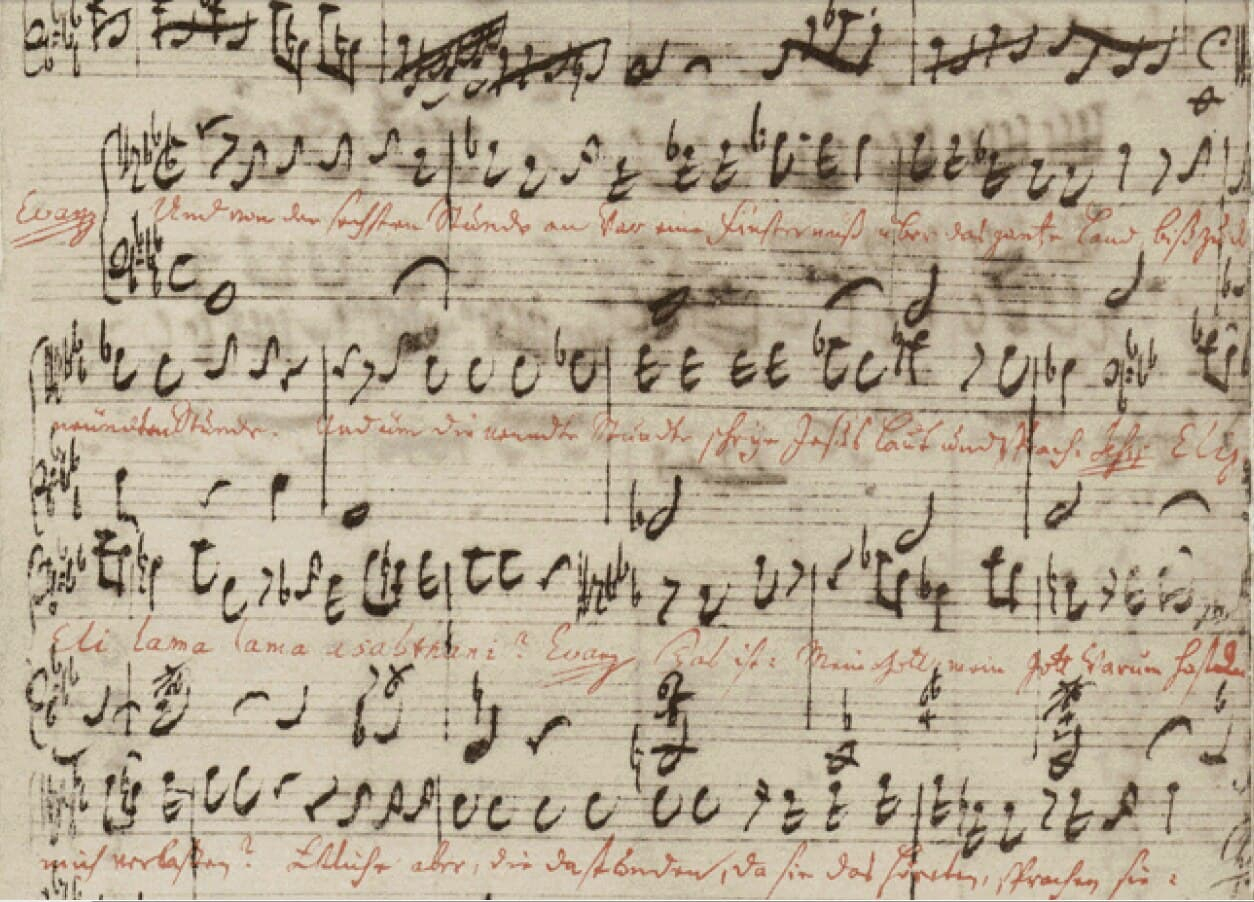 Evang Und von der sechsten Stunde an war eine Finsterniß über das gantze Land biß zu d
neundten Stunde. Und um die neundte Stunde schrye Jesus laut und sprach. Jesus Eli,
Eli lama lama asabthani? Evang Das ist: Mein Gott, mein Gott warum hastu
mich verlassen? Etliche aber, die da stunden, da sie das höreten, sprachen sie: